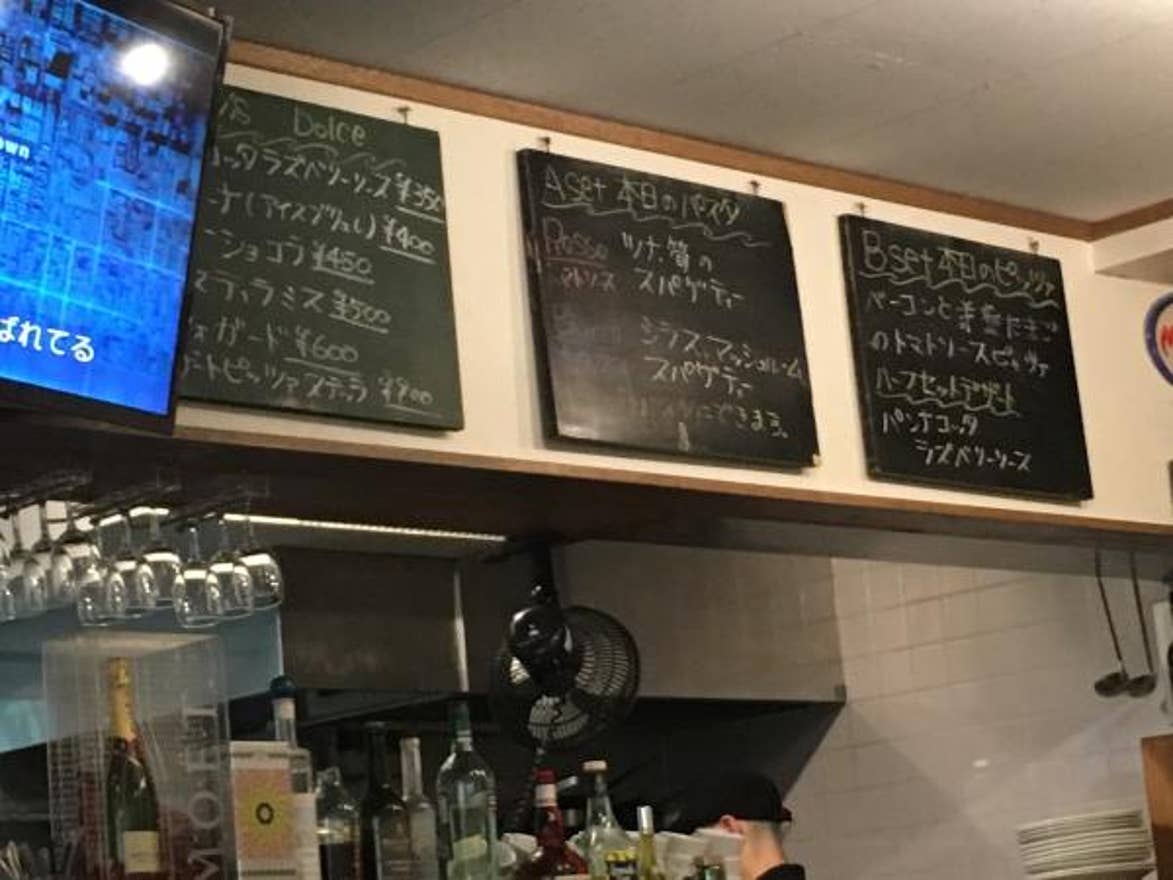 own
ばれてる
Dolce
ッタラズベリーソース ¥350
ーナ(アイスブリュレ) ¥400
ーショコラ ¥450
ティラミス ¥500
ガード ¥600
ートピッツァステラ ¥900
Aset 本日のパスタ
Rosso ツナ、筍の
トマトソース スパゲティー
シラス、マッシュルーム
スパゲティー
にできます。
Bset 本日のピッツァ
ベーコンと
のトマトソースピッツァ
ハーフセットデザート
パンナコッタ
ラズベリーソース
MOËT